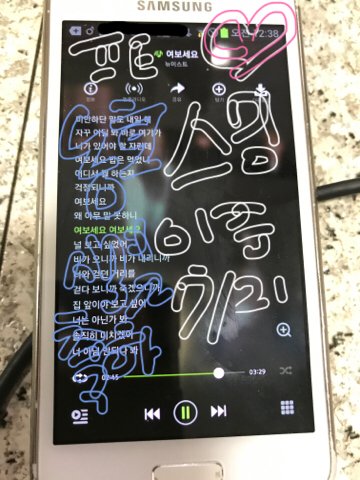 SAMSUNG
오전 12:38
여보세요
뉴이스트
정보
공유
담기
미안하단 말도 내일 해
자꾸 어딜 봐 바로 여기가
니가 있어야 할 자린데
여보세요 밥은 먹었니
어디서 뭘 하는지
걱정되니까
여보세요
왜 아무 말 못하니
여보세요 여보세요
널 보고 싶었어
비가 오니까 비가 내리니까
너와 걷던 거리를
걷다 보니까 죽겠으니까
집 앞이야 보고 싶어
너는 아닌가 봐
솔직히 미치겠어
너 아님 안되나 봐
스밍
02:45
03:29